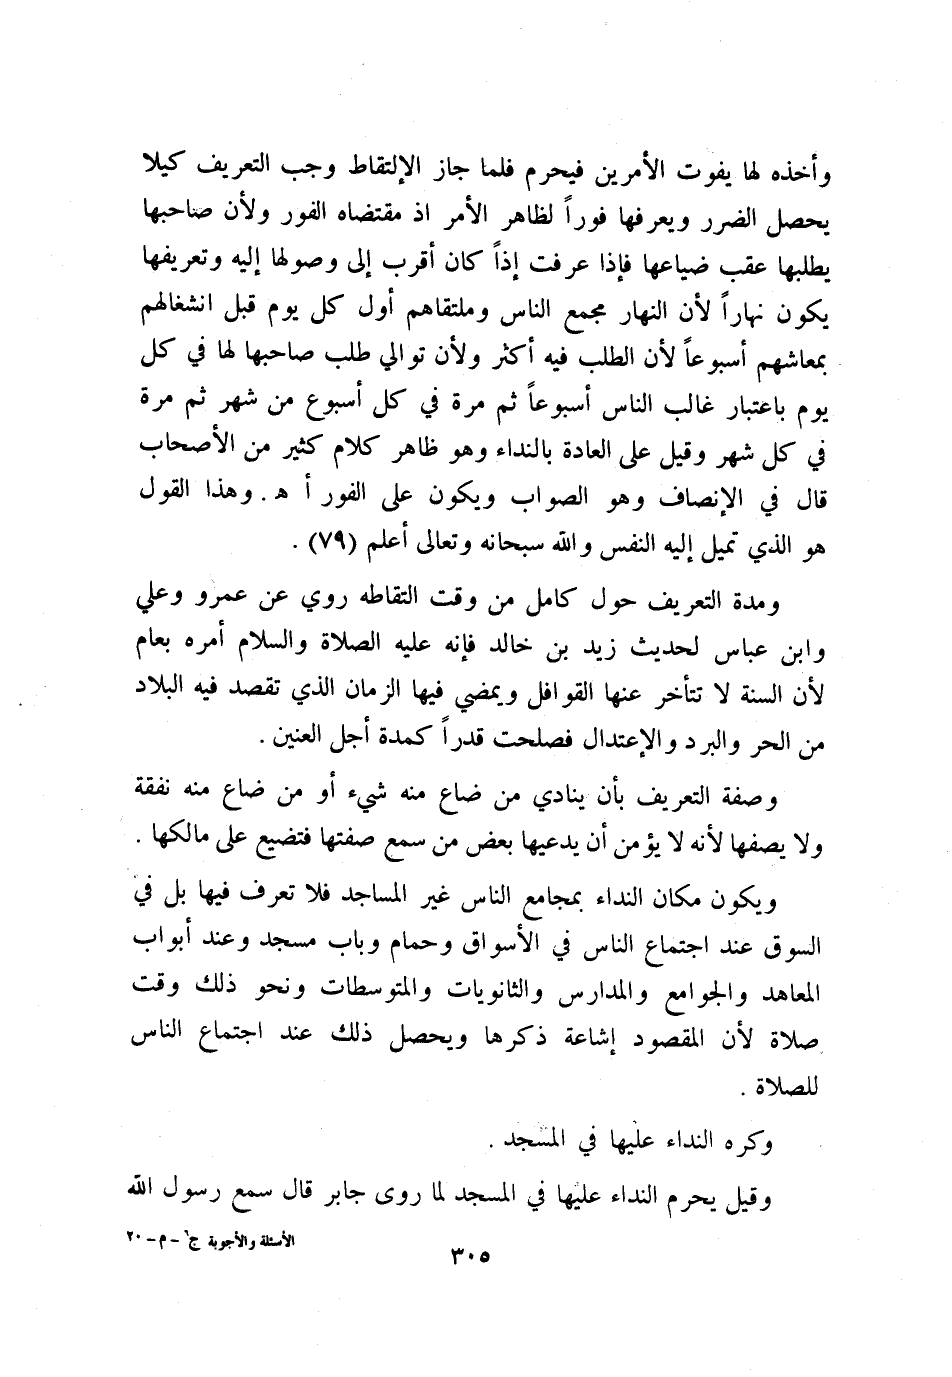 وأخذه لها يفوت الأمرين فيحرم فلما جاز الإلتقاط وجب التعريف كيلا
يحصل الضرر ويعرفها فوراً لظاهر الأمر اذ مقتضاه الفور ولأن صاحبها
يطلبها عقب ضياعها فإذا عرفت إذاً كان أقرب إلى وصولها إليه وتعريفها
يكون نهاراً لأن النهار مجمع الناس وملتقاهم أول كل يوم قبل انشغالهم
بمعاشهم أسبوعاً لأن الطلب فيه أكثر ولأن توالي طلب صاحبها لها في كل
يوم باعتبار غالب الناس أسبوعاً ثم مرة في كل أسبوع من شهر ثم مرة
في كل شهر وقيل على العادة بالنداء وهو ظاهر كلام كثير من الأصحاب
قال في الإنصاف وهو الصواب ويكون على الفور أ هـ. وهذا القول
هو الذي تميل إليه النفس والله سبحانه وتعالى أعلم (٧٩) .
ومدة التعريف حول كامل من وقت التقاطه روي عن عمرو وعلي
وابن عباس لحديث زيد بن خالد فإنه عليه الصلاة والسلام أمره بعام
لأن السنة لا تتأخر عنها القوافل ويمضي فيها الزمان الذي تقصد فيه البلاد
من الحر والبرد والإعتدال فصلحت قدراً كمدة أجل العنين .
وصفة التعريف بأن ينادي من ضاع منه شيء أو من ضاع منه نفقة
ولا يصفها لأنه لا يؤمن أن يدعيها بعض من سمع صفتها فتضيع على مالكها .
ويكون مكان النداء بمجامع الناس غير المساجد فلا تعرف فيها بل في
السوق عند اجتماع الناس في الأسواق وحمام وباب مسجد وعند أبواب
المعاهد والجوامع والمدارس والثانويات والمتوسطات ونحو ذلك وقت
صلاة لأن المقصود إشاعة ذكرها ويحصل ذلك عند اجتماع الناس
للصلاة .
وكره النداء عليها في المسجد .
وقيل يحرم النداء عليها في المسجد لما روى جابر قال سمع رسول الله
الأسئلة والأجوبة ج٦ - م - ٢٠
٣٠٥